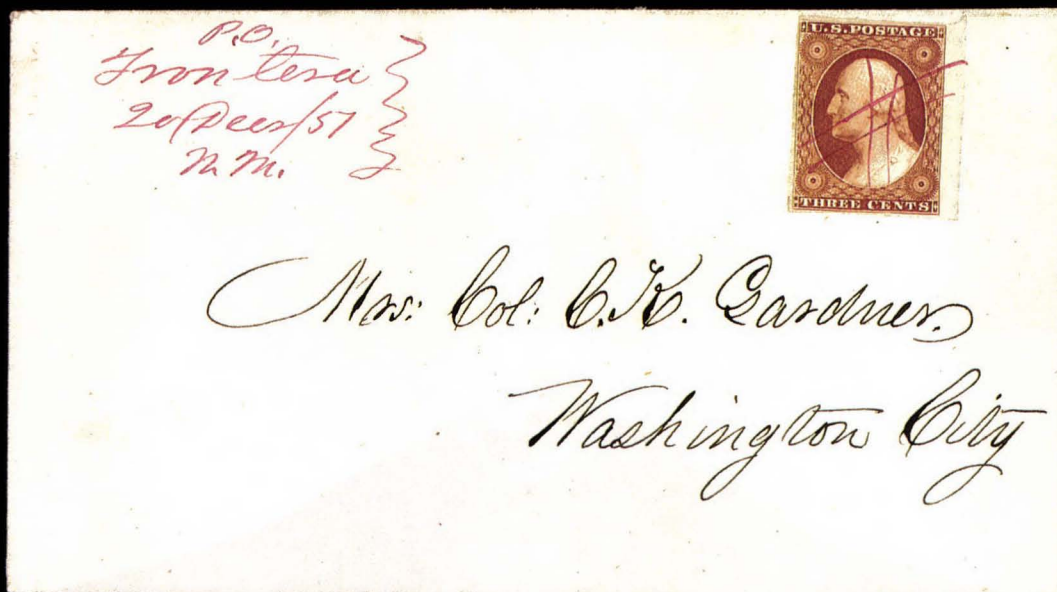 P.O.
Frontera
20/Decr/51
N. M.
U.S. POSTAGE
THREE CENTS
Mrs: Col: C. K. Gardner.
Washington City